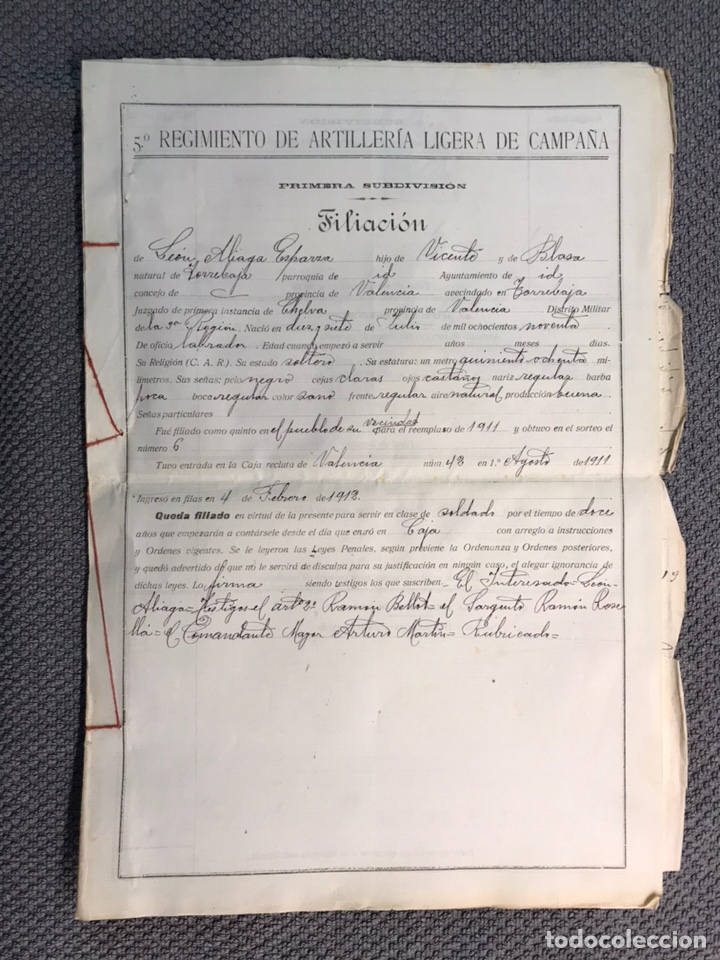 5.º REGIMIENTO DE ARTILLERÍA LIGERA DE CAMPAÑA
PRIMERA SUBDIVISIÓN
Filiación
de León Aliaga Esparza hijo de Vicente y de Blasa
natural de Torrebaja parroquia de id Ayuntamiento de id
concejo de provincia de Valencia avecindado en Torrebaja
Juzgado de primera instancia de Chelva provincia de Valencia Distrito Militar
de la 3ª Región. Nació en diez y siete de Julio de mil ochocientos noventa
De oficio labrador. Edad cuando empezó a servir años meses días.
Su Religión (C. A. R.) Su estado soltero. Su estatura: un metro quinientos ochenta mi-
límetros. Sus señas: pelo negro cejas claras ojos castaños nariz regular barba
poca boca regular color sano frente regular aire natural producción buena
Señas particulares
Fué filiado como quinto en el pueblo de su vecindad para el reemplazo de 1911 y obtuvo en el sorteo el
número 6
Tuvo entrada en la Caja recluta de Valencia núm. 42 en 1.º Agosto de 1911
Ingresó en filas en 4 de Febrero de 1912.
Queda filiado en virtud de la presente para servir en clase de soldado por el tiempo de doce
años que empezarán a contársele desde el día que entró en Caja con arreglo a instrucciones
y Ordenes vigentes. Se le leyeron las Leyes Penales, según previene la Ordenanza y Ordenes posteriores,
y quedó advertido de que no le servirá de disculpa para su justificación en ningún caso, el alegar ignorancia de
dichas leyes. Lo firma siendo testigos los que suscriben. El Interesado = León
Aliaga = Testigos = el artº 2º Ramón Bellot = el Sargento Ramón Rose
lló = el Comandante Mayor Arturo Martín = Rubricado =
19
todocoleccion